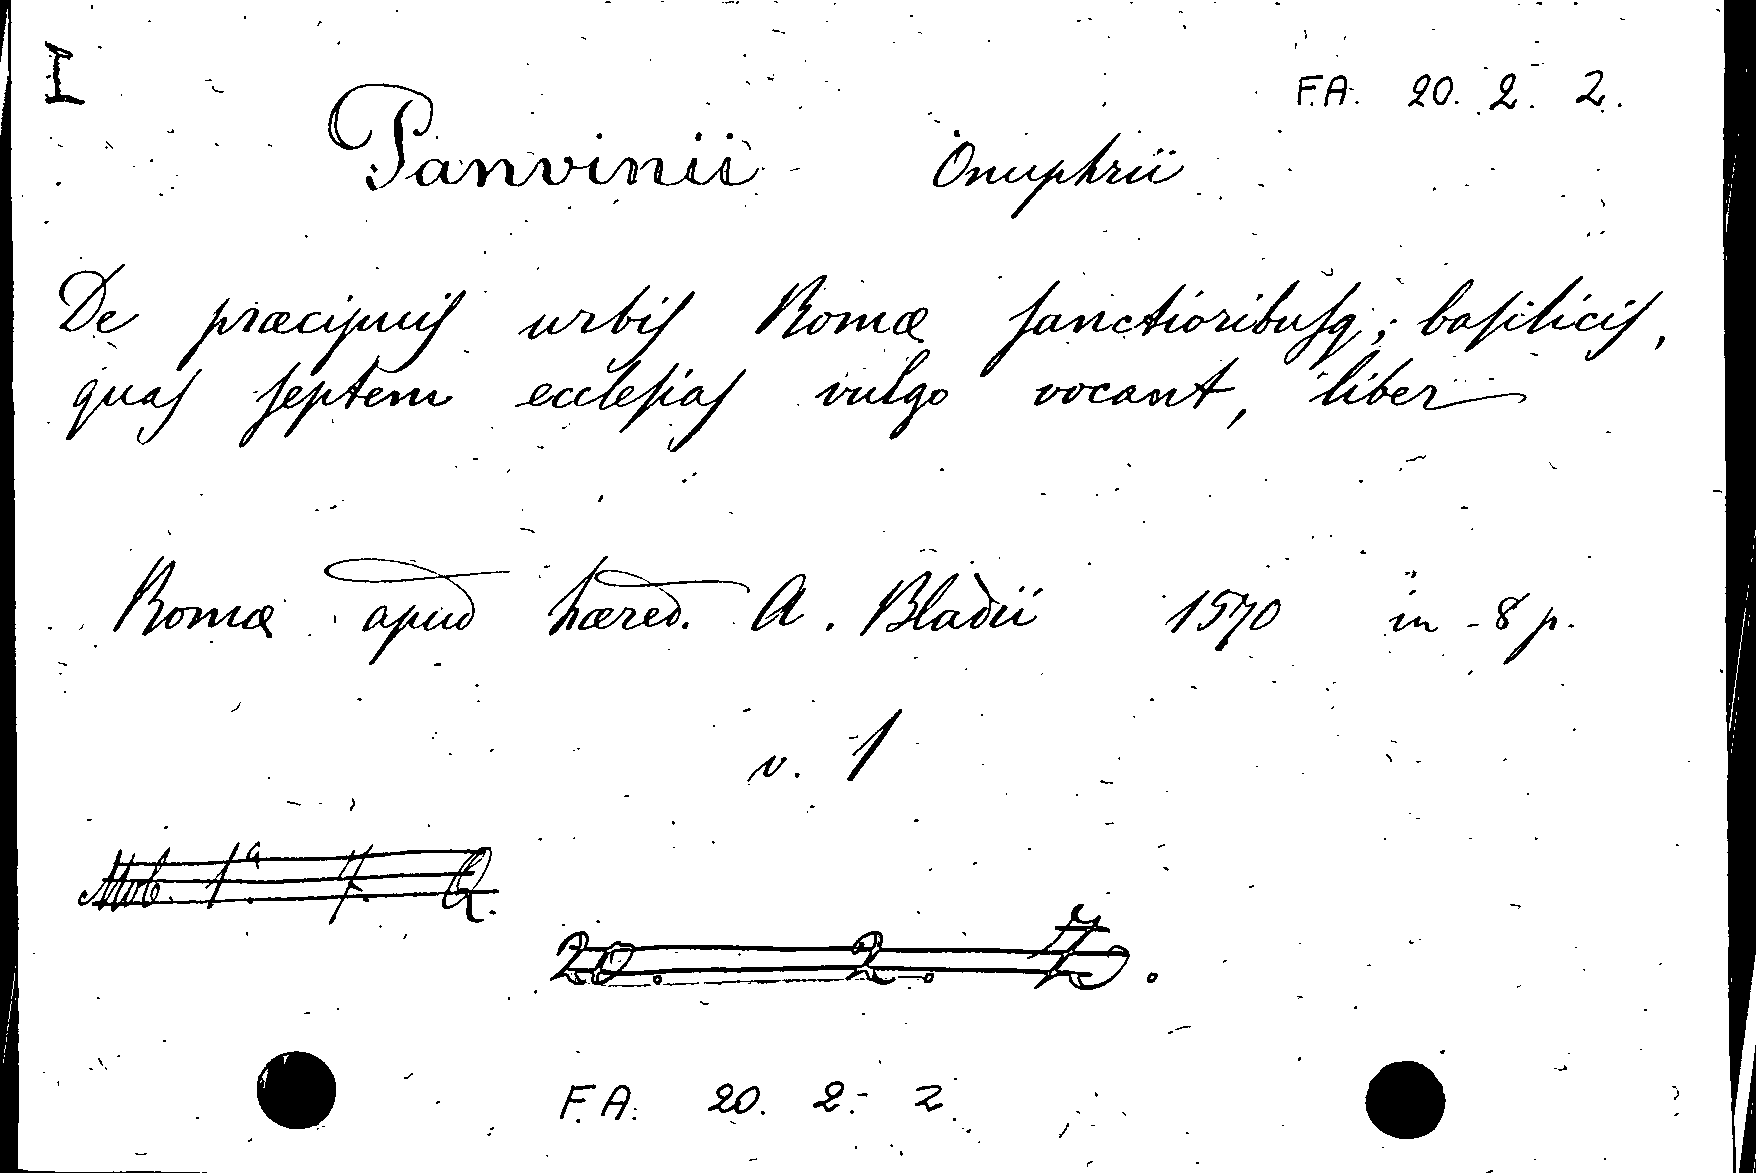 I
F.A. 20. 2. 2.
Panvinii Onuphrii
De præcipuis urbis Romæ sanctioribusq; basilicis,
quas septem ecclesias vulgo vocant, liber
Romæ apud hæred. A. Bladii 1570 in-8 p.
v. 1
Mob. 1.ª 7. Q.
20. 2. Z.
F.A. 20. 2. 2